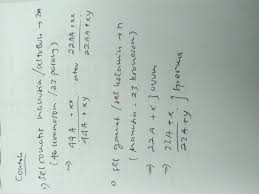 Contoh
1) sel somatis manusia / sel tubuh → 2n
(46 kromosom / 23 pasang)
⇒ 44A + xx atau 22AA + xx
44A + xy 22AA + xy
o sel gamet / sel kelamin → n
(manusia : 23 kromosom)
⇒ 22A + x } ovum
⇒ 22A + x } sperma
22A + y